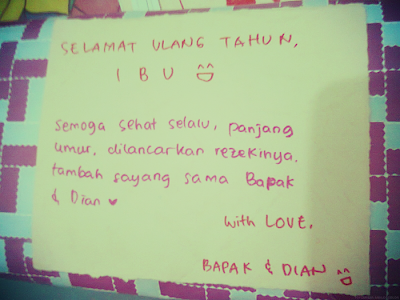 SELAMAT ULANG TAHUN,
I B U
Semoga sehat selalu, panjang
umur, dilancarkan rezekinya,
tambah sayang sama Bapak
& Dian ♥
with LOVE,
BAPAK & DIAN